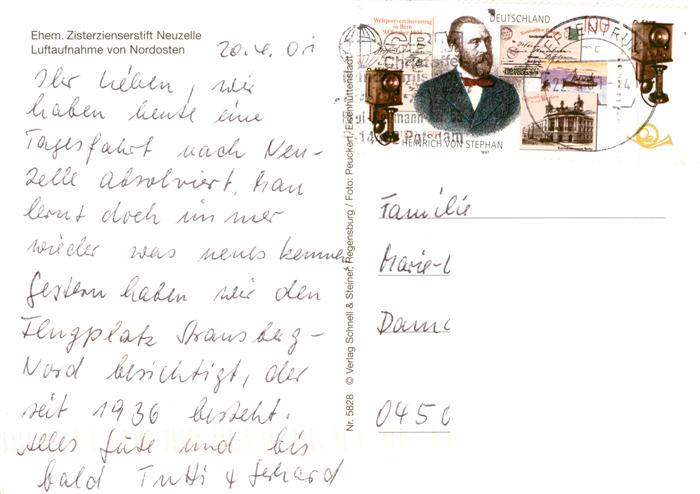 Ehem. Zisterzienserstift Neuzelle
Luftaufnahme von Nordosten
20.4.01
Ihr Lieben, wir
haben heute eine
Tagesfahrt nach Neu-
zelle absolviert. Man
lernt doch immer
wieder was neues kennen
Gestern haben wir den
Flugplatz Strausberg-
Nord besichtigt, der
seit 1936 besteht.
Alles Gute und bis
bald Tutti + Gerhard
Nr. 5828 © Verlag Schnell & Steiner, Regensburg / Foto: Peuckert, Eisenhüttenstadt
Weltpostvereinsvertrag
in Bern
9. Oktober 1874
DEUTSCHLAND
100
HEINRICH VON STEPHAN
1997
Potsdam
Familie
Marie-L
Dame
0450